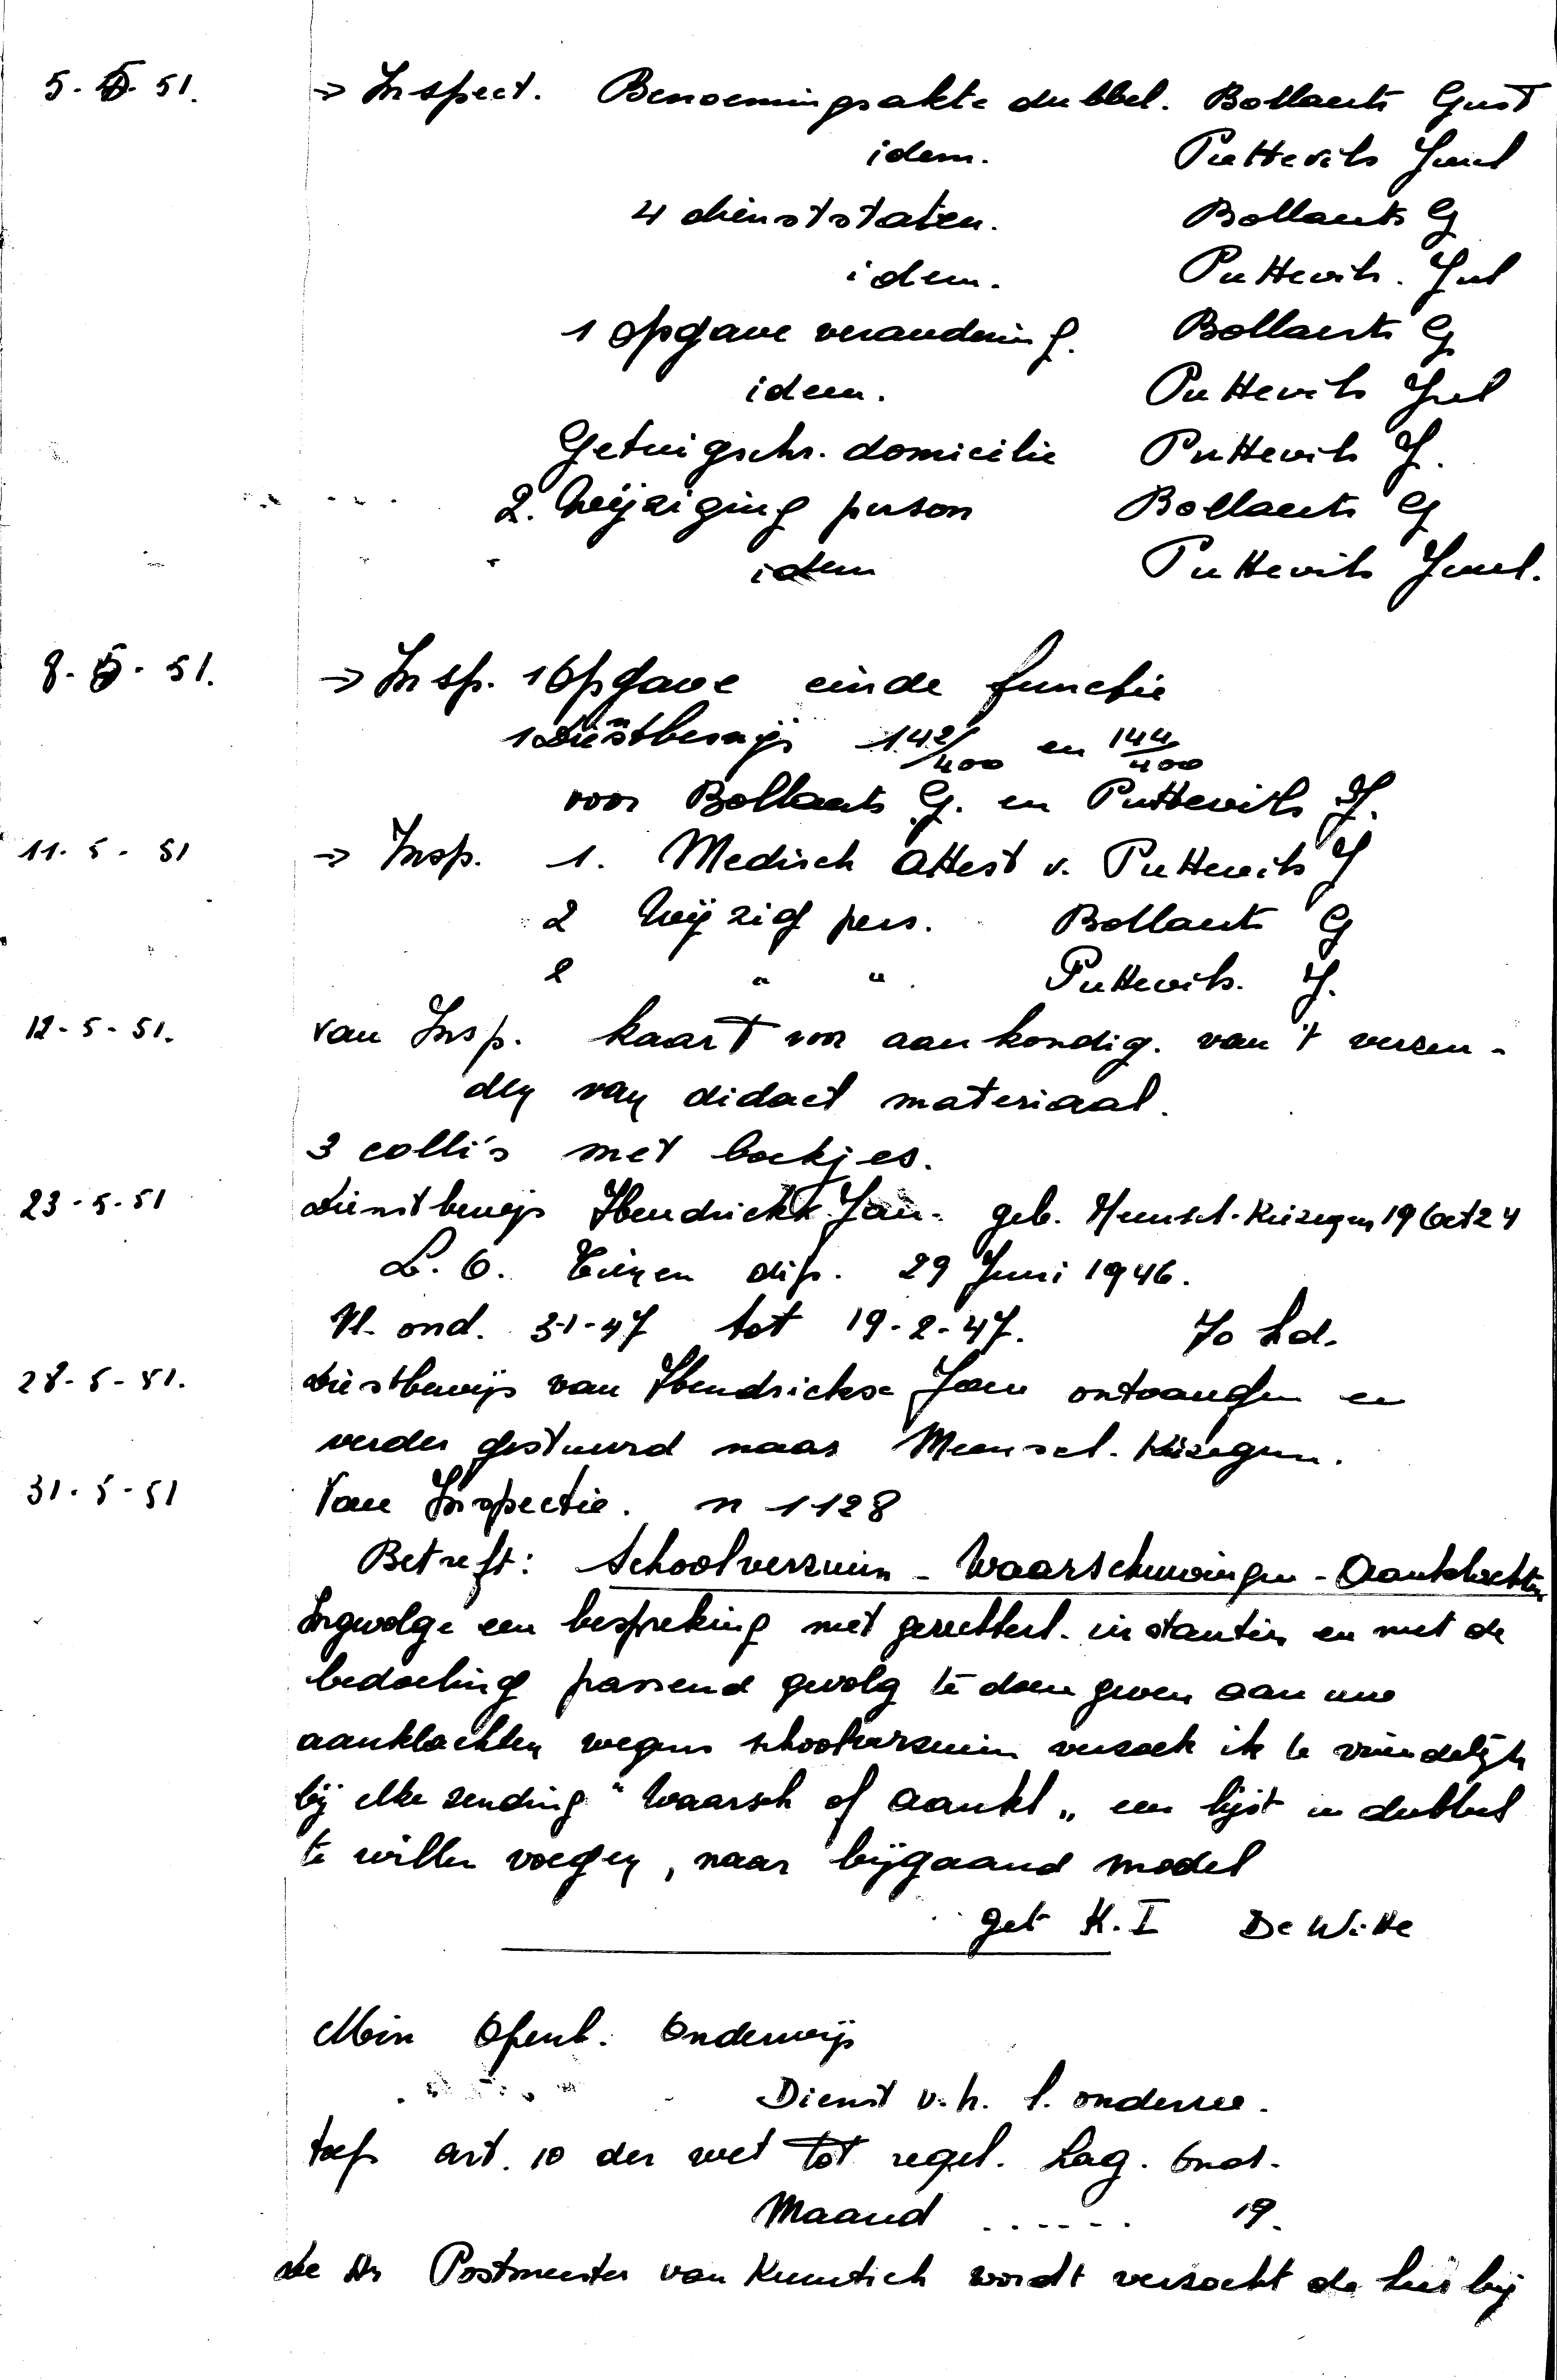 5. 5. 51. → Inspect. Benoemingsakte dubbel. Bollaerts Gust
idem. Puttevils Juul
4 dienststaten. Bollaerts G
idem. Puttevils. Jul
1 opgave verandering. Bollaerts G
idem. Puttevils Jul
Getuigschr. domicilie Puttevils J.
2. Wijziging person Bollaerts G
idem Puttevils Juul.
8. 5. 51. → Insp. 1 Opgave einde functie
1 Dienstbewijs 142/400 en 144/400
voor Bollaerts G. en Puttevils J.
11. 5 - 51 → Insp. 1. Medisch Attest v. Puttevils J
2 Wijzig pers. Bollaerts G
2 " " . Puttevils. J.
12 - 5 - 51. van Insp. kaart voor aankondig. van 't verzen-
den van didact materiaal.
3 colli's met boekjes.
23 - 5 - 51 Dienstbewijs Hendrickx Jan. geb. Meensel-Kiezegem 19 Oct 24
L. O. Tienen dip. 29 Juni 1946.
Vl. ond. 3-1-47 tot 19-2-47. 70 Ld.
28 - 5 - 51. Dienstbewijs van Hendrickx Jan ontvangen en
verder gestuurd naar Meensel-Kiezegem.
31 - 5 - 51 Van Inspectie. n 1128
Betreft: Schoolverzuim - Waarschuwingen - Aanklachten
Ingevolge een bespreking met gerechterl. instantiën en met de
bedoeling passend gevolg te doen geven aan uwe
aanklachten wegens schoolverzuim verzoek ik U vriendelijk
bij elke zending "Waarsch of Aankl„ een lijst in dubbel
te willen voegen, naar bijgaand model
get K. I De Witte
Min Openb. Onderwijs
Dienst v. h. l. onderw.
toep art. 10 der wet tot regel. Lag. Ond.
Maand ...... 19.
De Hr Postmeester van Kumtich wordt verzocht de hierbij